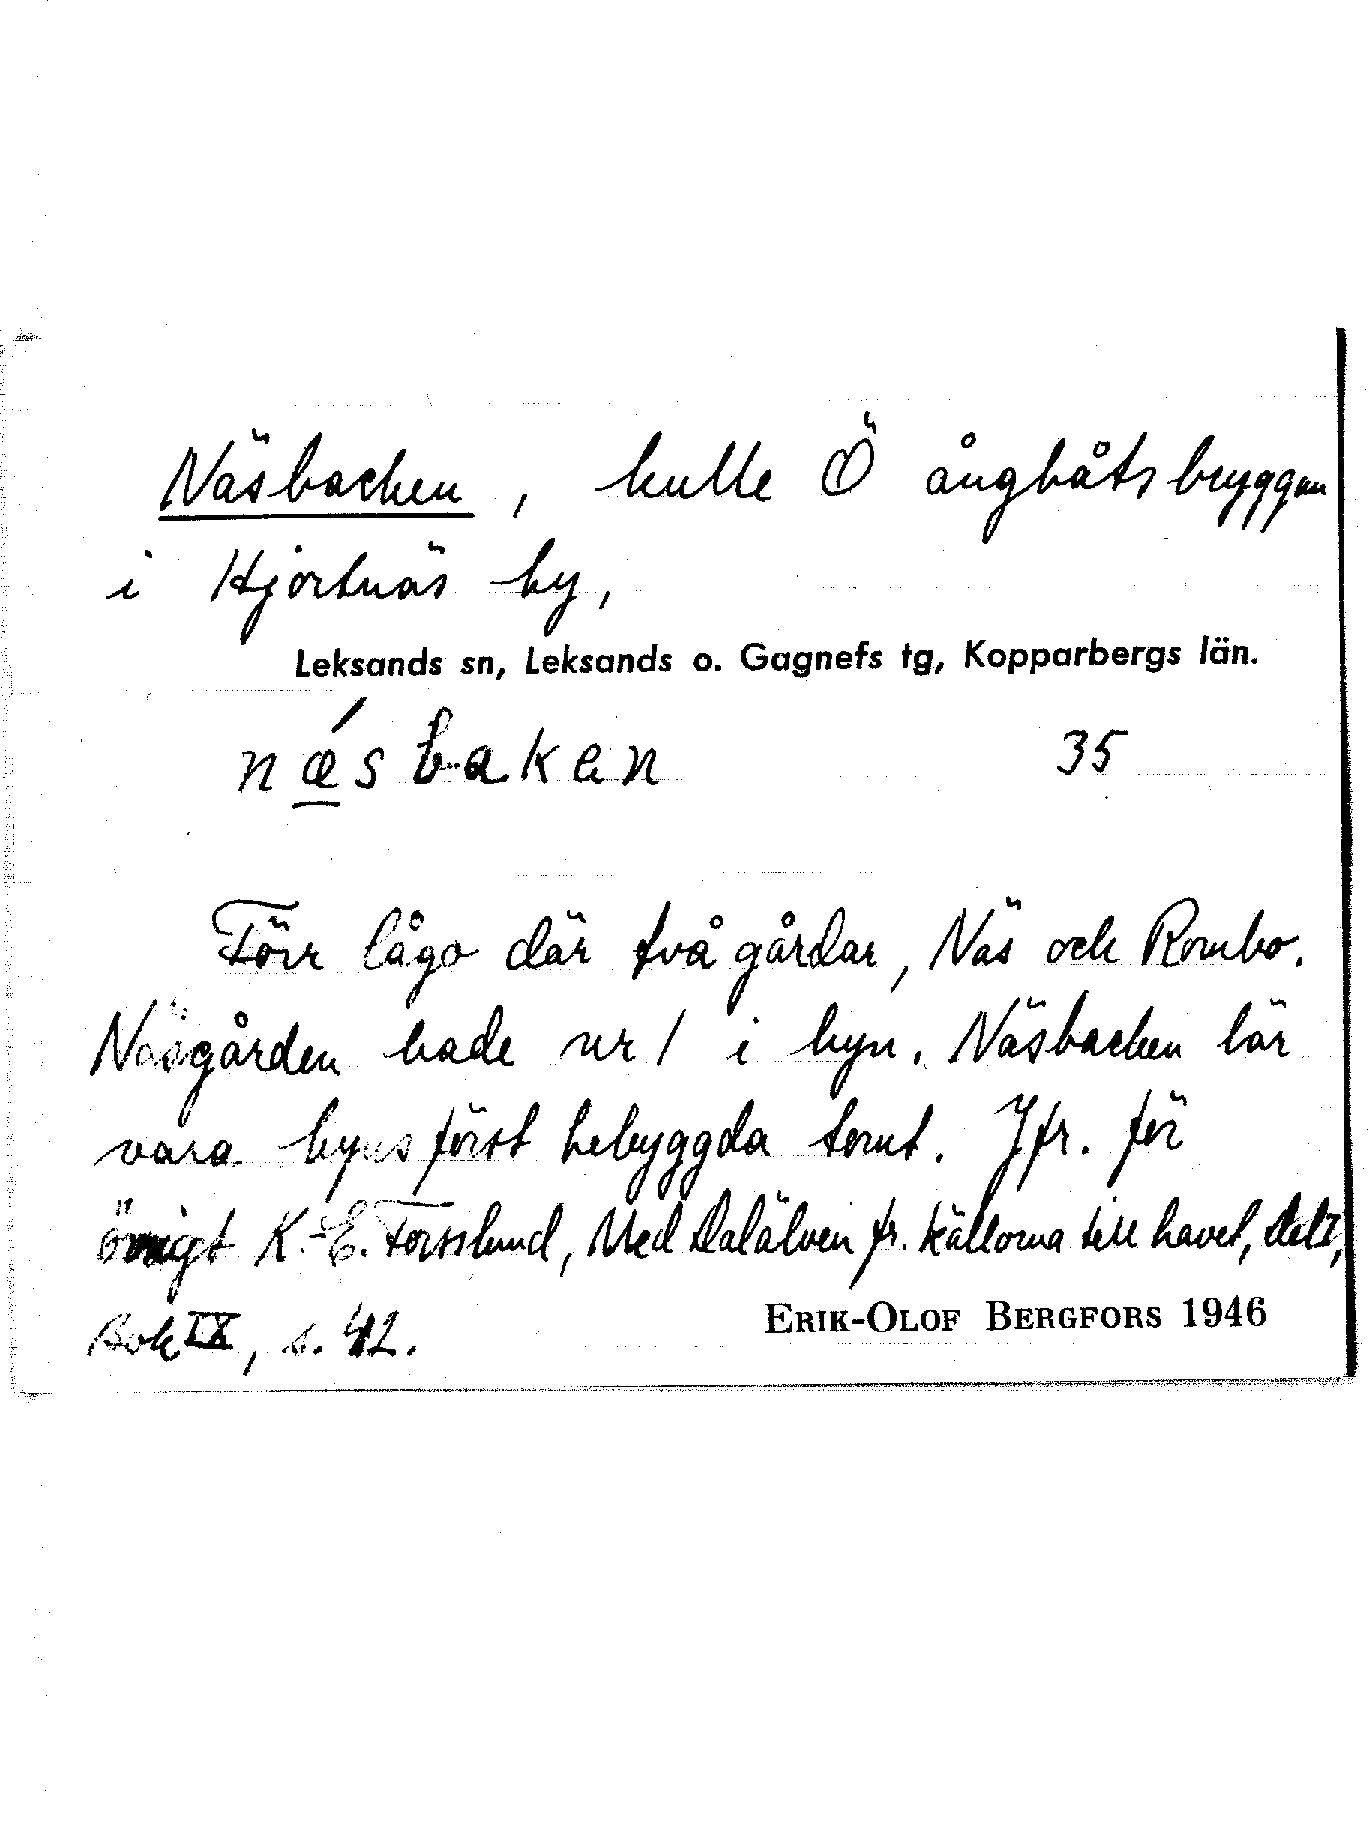 Näsbacken, kulle Ö ångbåtsbryggan
i Hjortnäs by,
Leksands sn, Leksands o. Gagnefs tg, Kopparbergs län.
nǽsbakan 35
Förr lågo där två gårdar, Näs och Rombo.
Näsgården hade nr 1 i byn. Näsbacken lär
vara byns först bebyggda tomt. Jfr. för
övrigt K.-E. Forsslund, Med Dalälven fr. källorna till havet, Del I,
Bok IX, s. 42.
ERIK-OLOF BERGFORS 1946